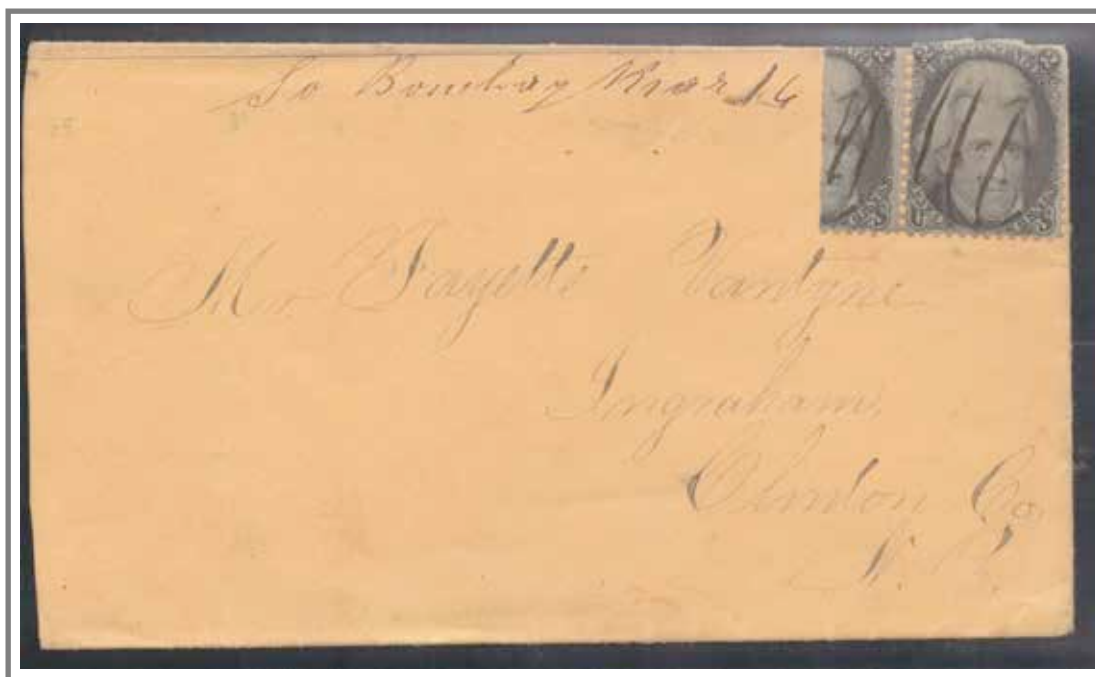 So Bombay Mar 16
Mr Fayette Vantyne
Ingraham,
Clinton Co.
N. Y.
U